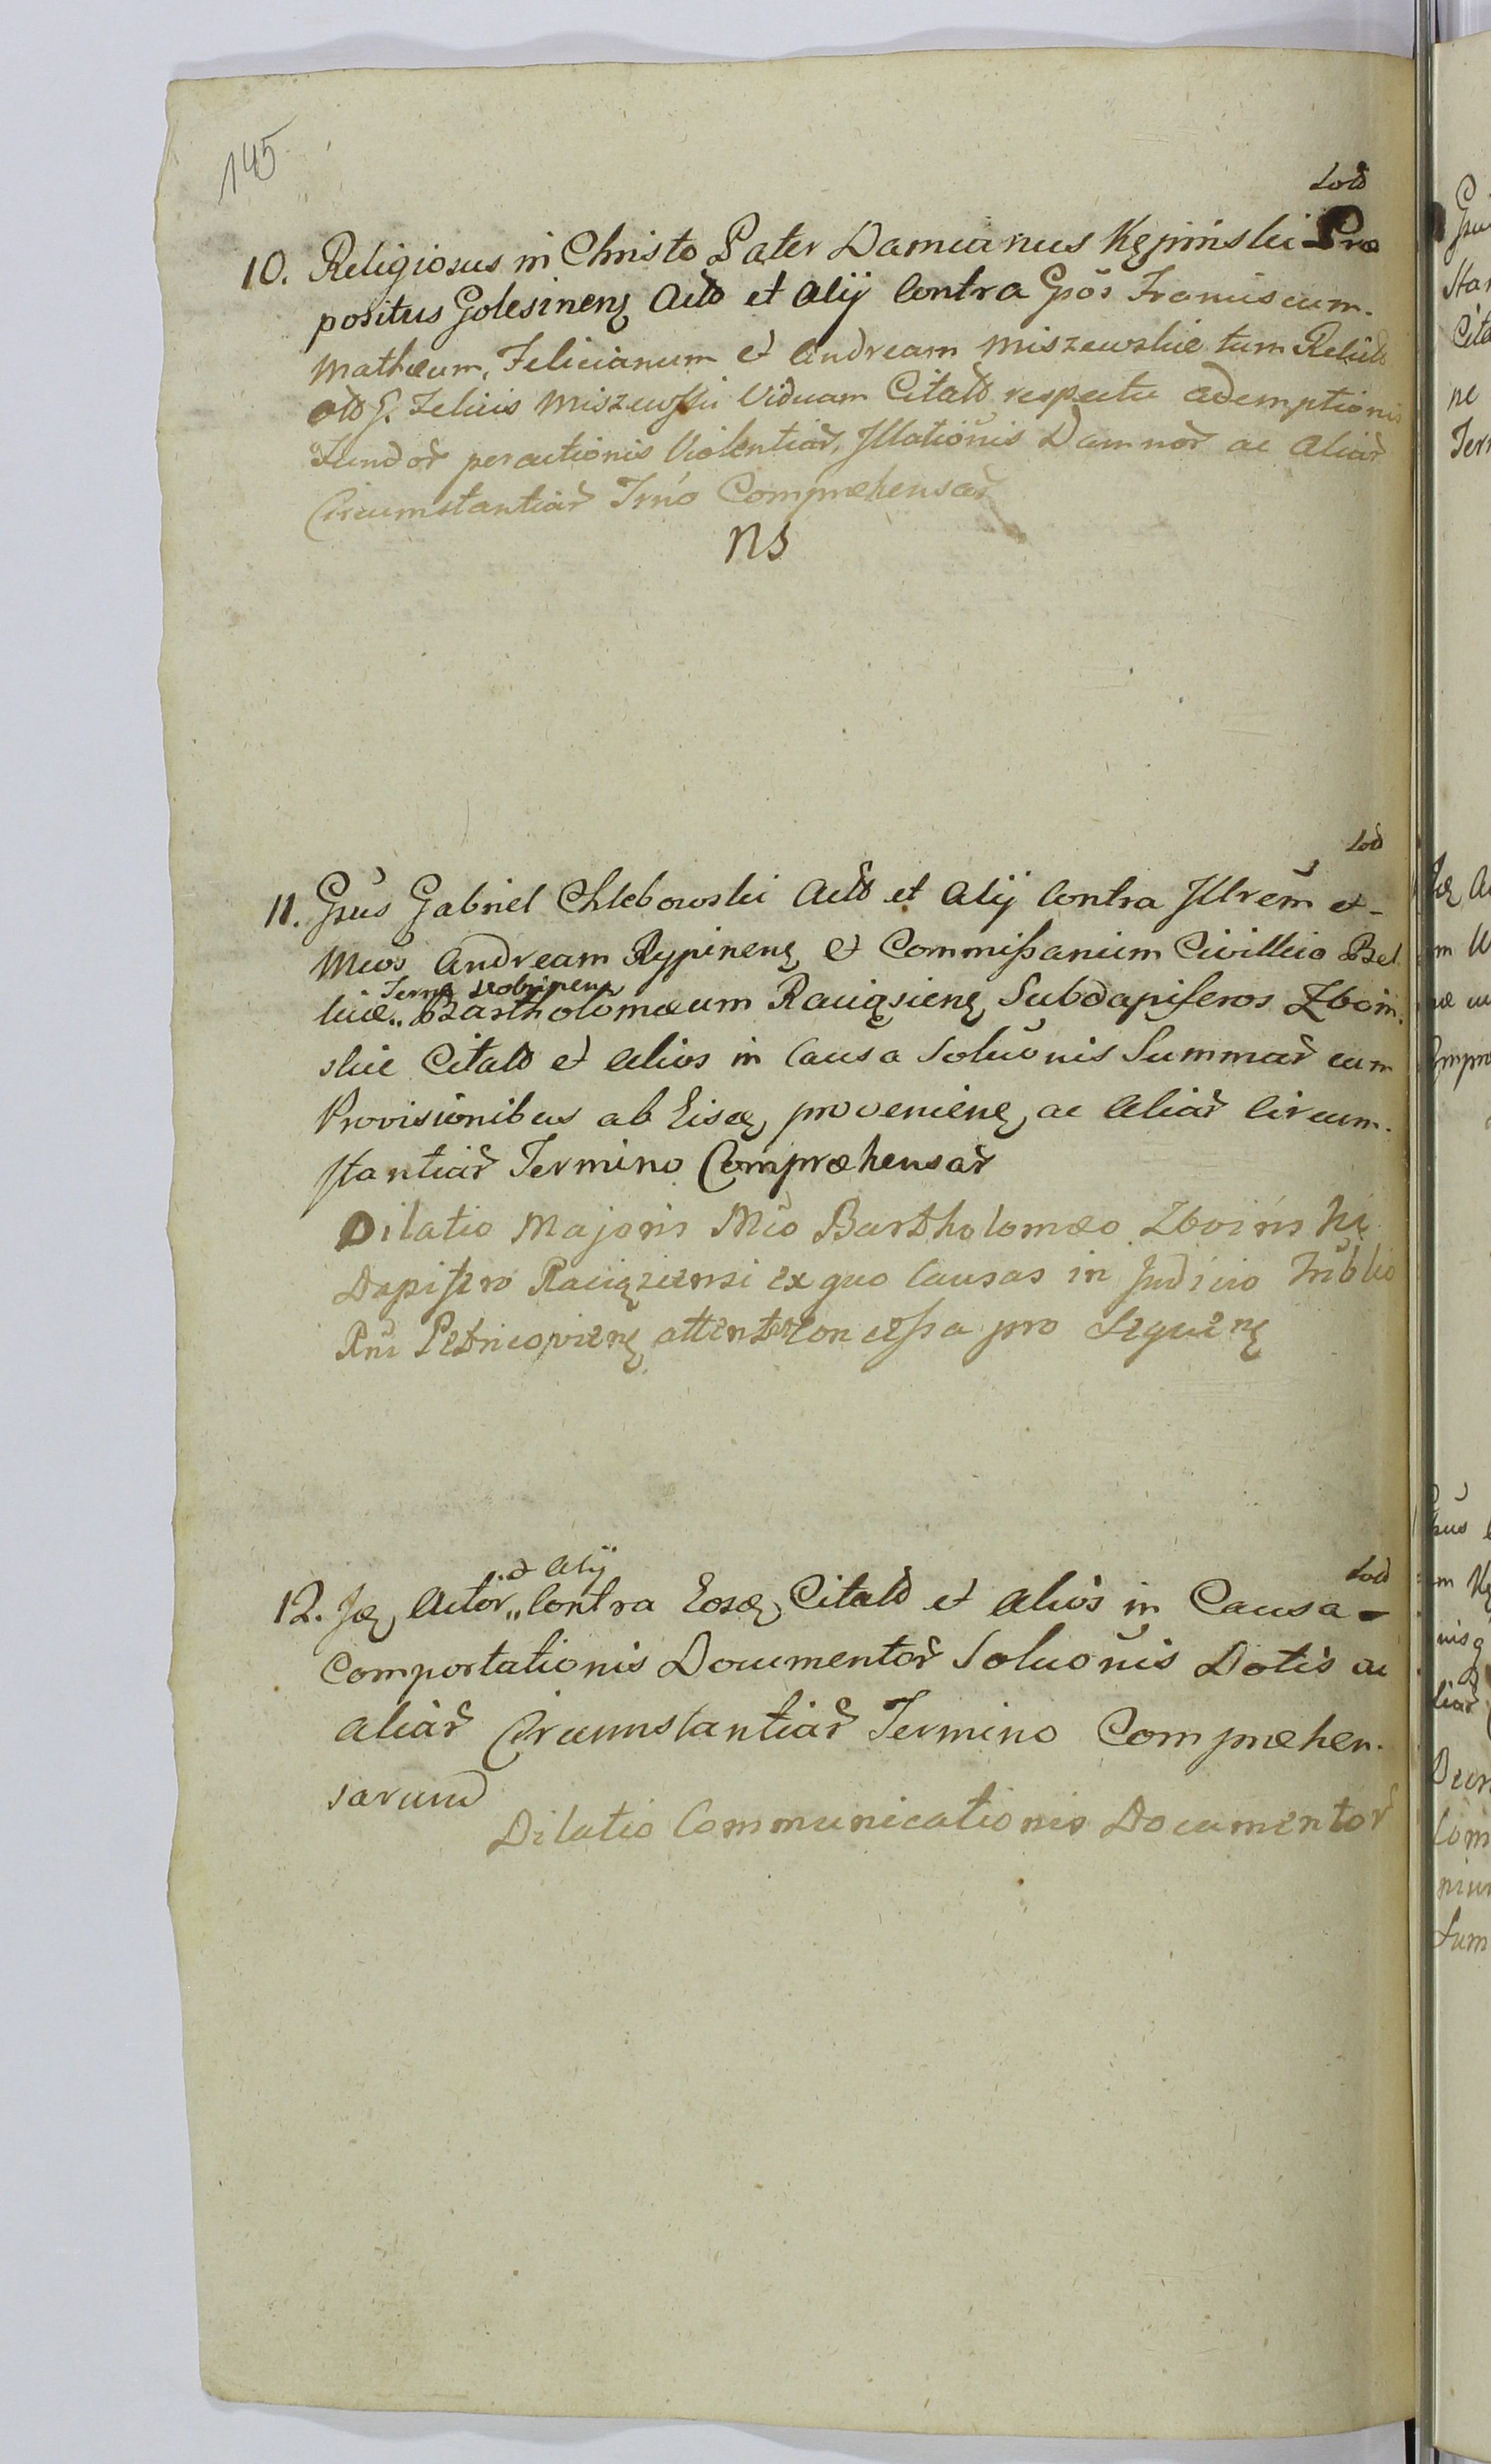 145
10. Religiosus in Christo Pater Damianus Kępiński Præ
positus Golesinens Actō et Alij Contra Gsōs Franciscum.
Mathæum, Felicianum et Andream Miszewskie tum Relict
olō G. Felicis Miszewski Viduam Citatō respectu ademptionis
Fundor̄ peractionis Violentiar̄, Illationis Damnor̄ ac Aliar̄
Circumstantiar̄ Tr̄no Compræhensar̄
NS
11. Gsūs Gabriel Chlebowski Actō et Alij Contra Illrēm et
Mcōs Andream Rypinens et Commissarium Civillico Bel
Terræ Dobrinens
licæ „ Bartholomæum Raciąziens Subdapiferos Zboin.
skie Citatō et Alios in Causa Soluōnis Summar̄ cum
Provisionibus ab Eisq proveniens ac Aliar̄ Circum.
stantiar̄ Termino Compræhensar̄
Dilatio Majoris Mcō Bartholomæo Zboińskį
Dapifero Raciąziensi ex quo Causas in Judicio Tribl̄io
Rnī Petricoviens attentat concessa pro Sequens
12. Jq Actor̄ „ Contra Eosq Citatō et Alios in Causa
et Alij
Comportationis Documentor̄ Soluōnis Dotis ac
Aliar̄ Circumstantiar̄ Termino Compræhen.
sarum
Dilatio Communicationis Documentor̄